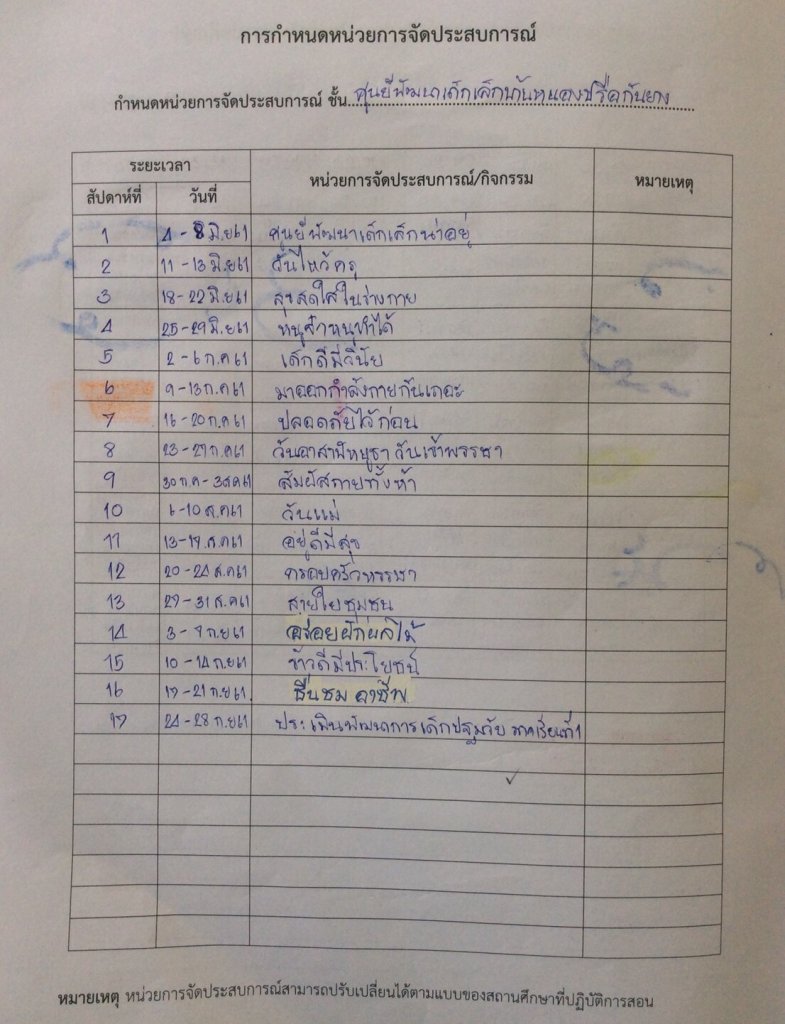 การกำหนดหน่วยการจัดประสบการณ์
กำหนดหน่วยการจัดประสบการณ์ ชั้น ศูนย์พัฒนาเด็กเล็กบ้านหนองปรือกันยาง
ระยะเวลา หน่วยการจัดประสบการณ์/กิจกรรม หมายเหตุ
สัปดาห์ที่ วันที่
1 4 - 8 มิ.ย 61 ศูนย์พัฒนาเด็กเล็กน่าอยู่
2 11 - 15 มิ.ย 61 วันไหว้ครู
3 18 - 22 มิ.ย 61 สุขสดใสในร่างกาย
4 25 - 29 มิ.ย 61 หนูจ๋าหนูทำได้
5 2 - 6 ก.ค 61 เด็กดีมีวินัย
6 9 - 13 ก.ค 61 มาออกกำลังกายกันเถอะ
7 16 - 20 ก.ค 61 ปลอดภัยไว้ก่อน
8 23 - 27 ก.ค 61 วันอาสาฬหบูชา วันเข้าพรรษา
9 30 ก.ค - 3 ส.ค 61 สัมผัสกายทั้งห้า
10 6 - 10 ส.ค 61 วันแม่
11 13 - 17 ส.ค 61 อยู่ดีมีสุข
12 20 - 24 ส.ค 61 ครอบครัวหรรษา
13 27 - 31 ส.ค 61 สายใยชุมชน
14 3 - 7 ก.ย 61 อร่อยผักผลไม้
15 10 - 14 ก.ย 61 ข้าวดีมีประโยชน์
16 17 - 21 ก.ย 61 ชื่นชม อาชีพ
17 24 - 28 ก.ย 61 ประเมินพัฒนาการเด็กปฐมวัย ภาคเรียนที่ 1
หมายเหตุ หน่วยการจัดประสบการณ์สามารถปรับเปลี่ยนได้ตามแบบของสถานศึกษาที่ปฏิบัติการสอน